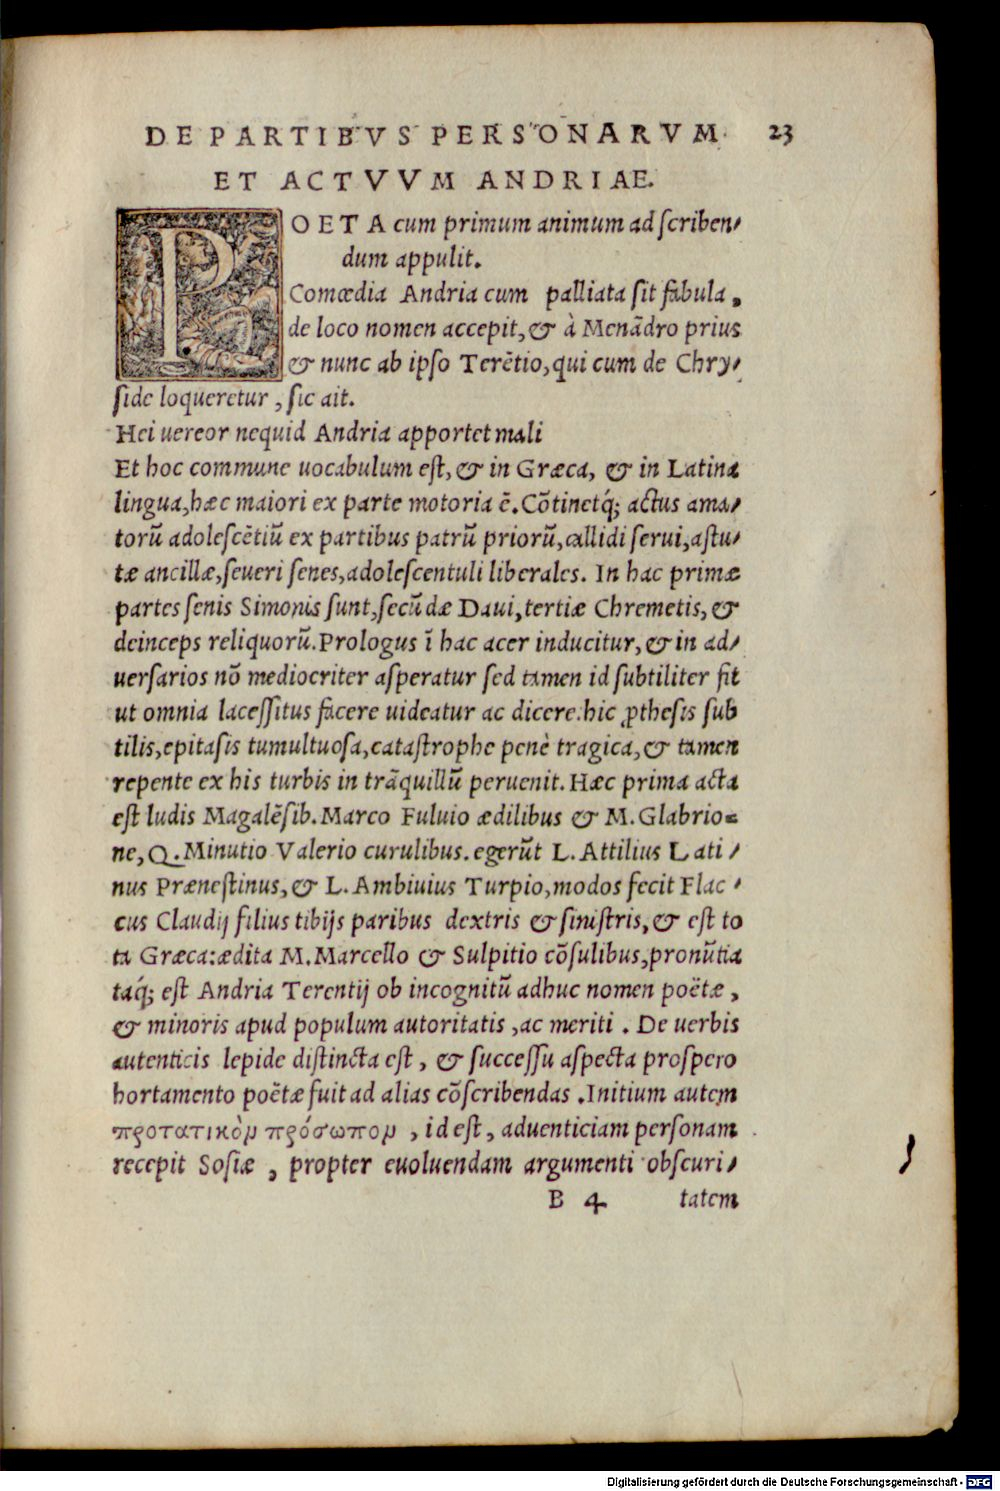 DE PARTIBVS PERSONARVM 23
ET ACTVVM ANDRIAE.
POETA cum primum animum ad ſcriben⸗
dum appulit.
Comœdia Andria cum palliata ſit fabula,
de loco nomen accepit, & à Menãdro prius
& nunc ab ipſo Terẽtio, qui cum de Chry⸗
ſide loqueretur, ſic ait.
Hei uereor nequid Andria apportet mali
Et hoc commune uocabulum eſt, & in Græca, & in Latina
lingua, hæc maiori ex parte motoria ẽ. Cõtinetq́; actus ama⸗
torũ adoleſcẽtiũ ex partibus patrũ priorũ, callidi ſerui, aſtu⸗
tæ ancillæ, ſeueri ſenes, adoleſcentuli liberales. In hac primæ
partes ſenis Simonis ſunt, ſecũdæ Daui, tertiæ Chremetis, &
deinceps reliquorũ. Prologus ĩ hac acer inducitur, & in ad⸗
uerſarios nõ mediocriter aſperatur ſed tamen id ſubtiliter fit
ut omnia laceſſitus facere uideatur ac dicere. hic ꝓtheſis ſub
tilis, epitaſis tumultuoſa, cataſtrophe penè tragica, & tamen
repente ex his turbis in trãquillũ peruenit. Hæc prima acta
eſt ludis Magalẽſib. Marco Fuluio ædilibus & M. Glabrio⸗
ne, Q. Minutio Valerio curulibus. egerũt L. Attilius Lati⸗
nus Præneſtinus, & L. Ambiuius Turpio, modos fecit Flac⸗
cus Claudij filius tibijs paribus dextris & ſiniſtris, & eſt to
ta Græca: ædita M. Marcello & Sulpitio cõſulibus, pronũtia
taq́; eſt Andria Terentij ob incognitũ adhuc nomen poëtæ,
& minoris apud populum autoritatis, ac meriti. De uerbis
autenticis lepide diſtincta eſt, & ſucceſſu aſpecta proſpero
hortamento poëtæ fuit ad alias cõſcribendas. Initium autem
προτατικὸν πρόσωπον, id eſt, aduenticiam perſonam
recepit Soſiæ, propter euoluendam argumenti obſcuri⸗
B 4 tatem
Digitalisierung gefördert durch die Deutsche Forschungsgemeinschaft - DFG